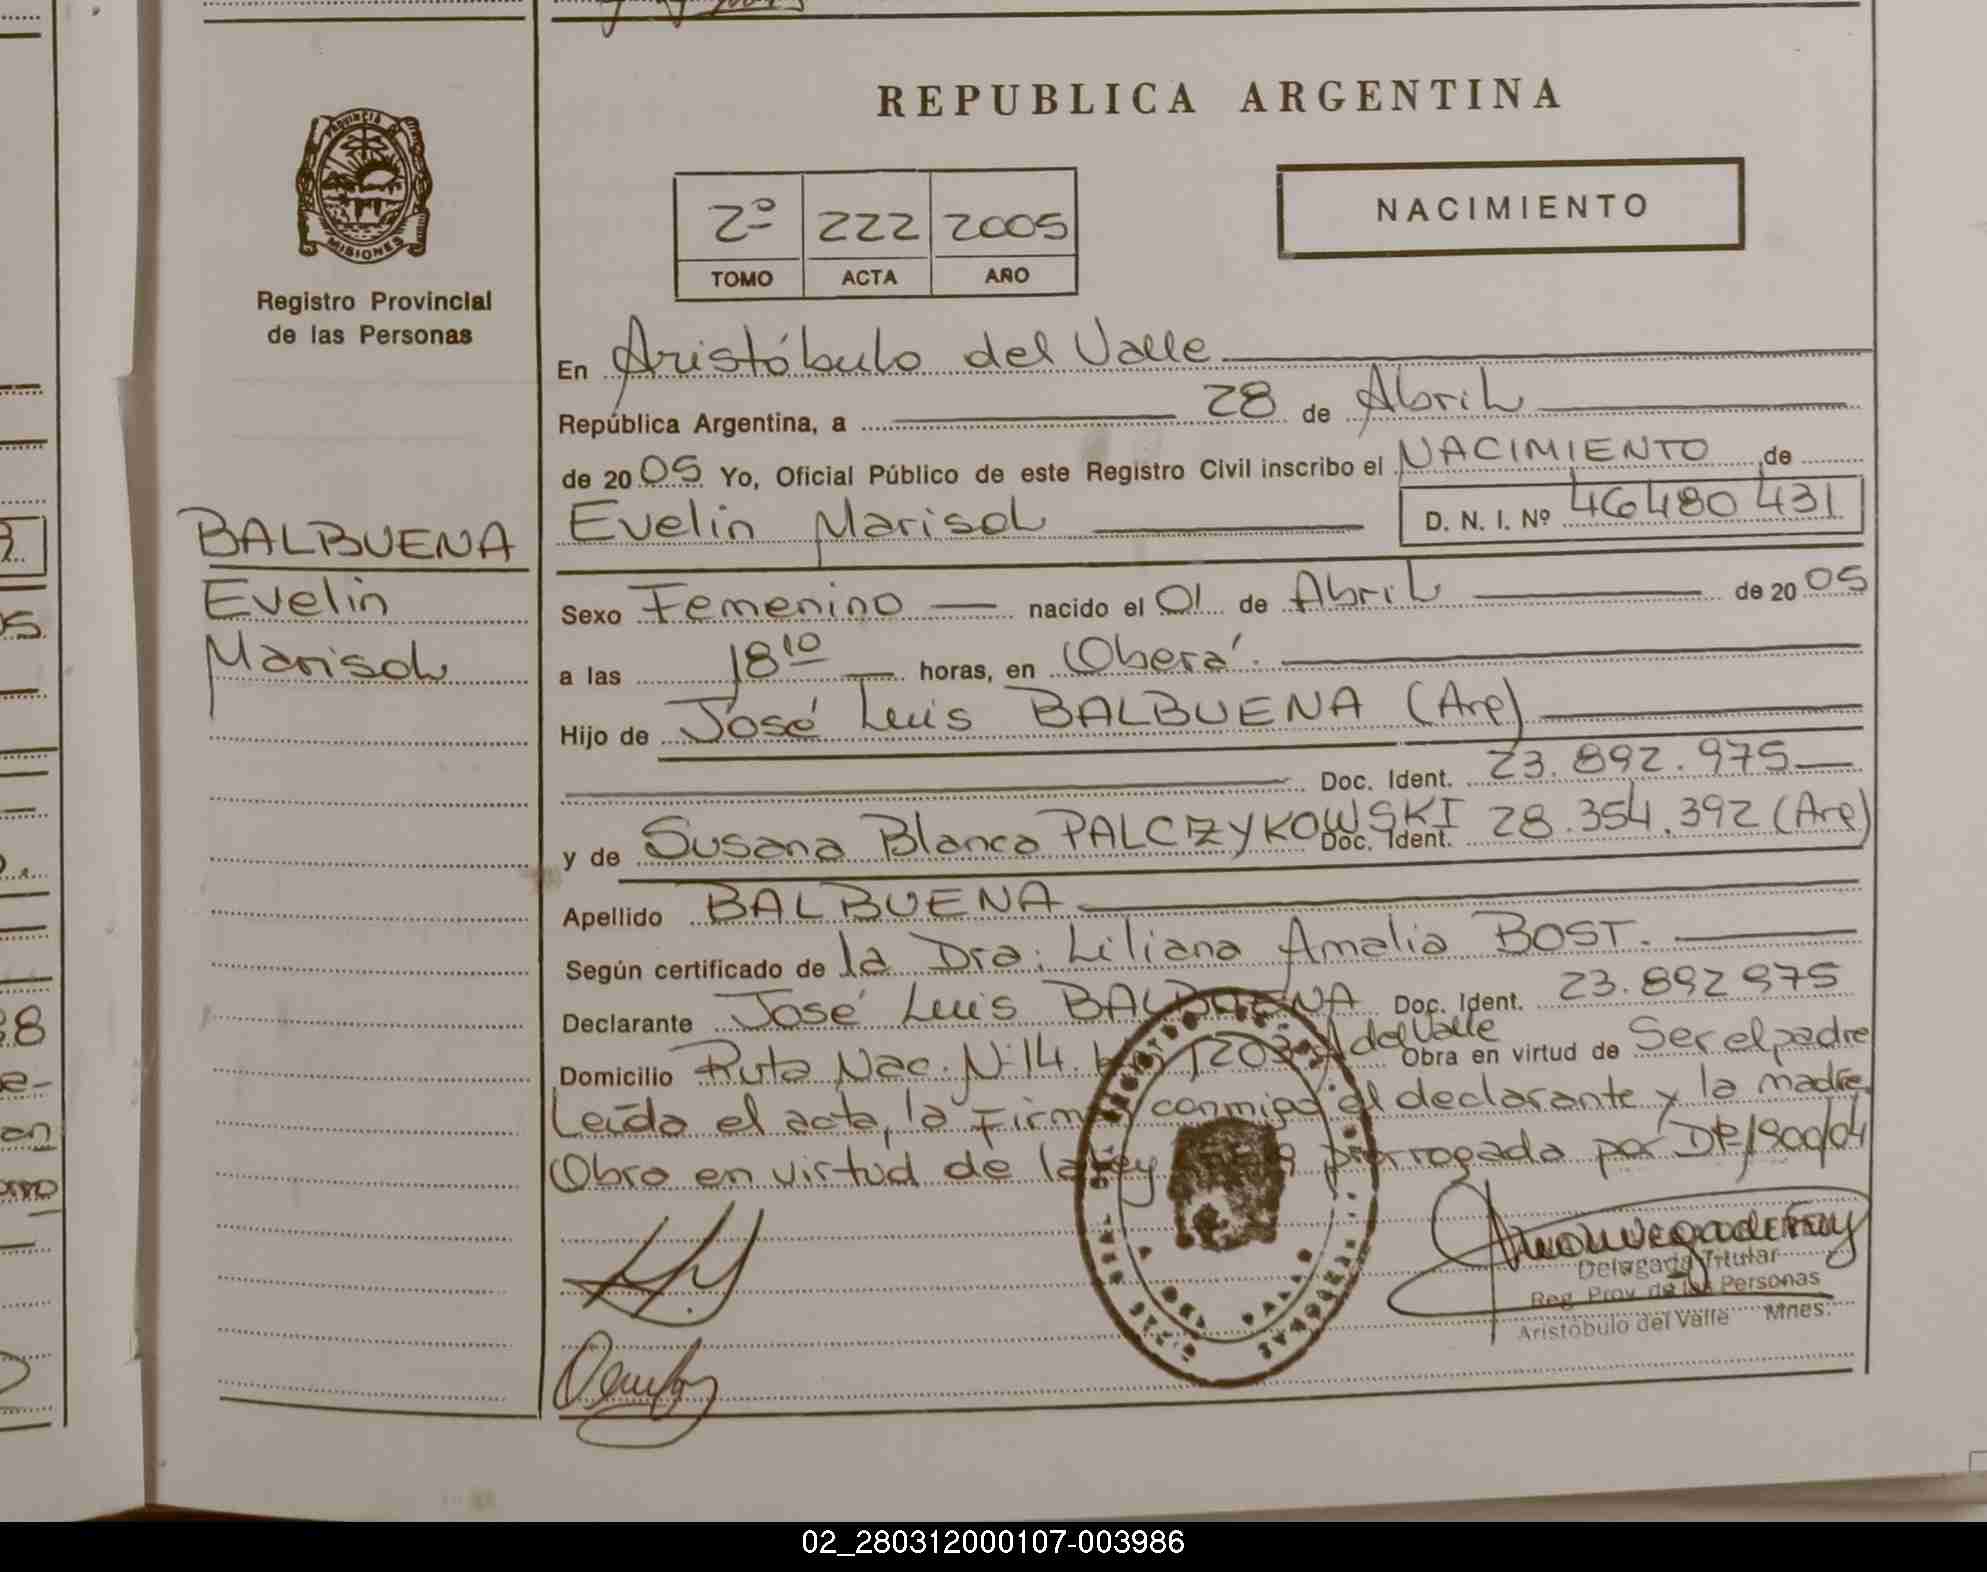 REPUBLICA ARGENTINA
PROVINCIA DE
MISIONES
Registro Provincial
de las Personas
2º 222 2005
TOMO ACTA AÑO
NACIMIENTO
En Aristóbulo del Valle
República Argentina, a 28 de Abril
de 2005 Yo, Oficial Público de este Registro Civil inscribo el NACIMIENTO de
Evelin Marisol D. N. I. Nº 46480431
BALBUENA
Evelin
Marisol
Sexo Femenino nacido el 01 de Abril de 2005
a las 18 10 horas, en Oberá.
Hijo de José Luis BALBUENA (Arg)
Doc. Ident. 23.892.975
y de Susana Blanca PALCZYKOWSKI Doc. Ident. 28.354.392 (Arg)
Apellido BALBUENA
Según certificado de la Dra. Liliana Amalia BOST.
Declarante José Luis BALBUENA Doc. Ident. 23.892 975
Domicilio Ruta Nac. Nº 14. 1203 A del Valle Obra en virtud de Ser el padre
Leída el acta, la Firman conmigo el declarante y la madre
Obro en virtud de la ley prorrogada por
Delegada Titular
Reg. Prov. de las Personas
Aristóbulo del Valle Mnes.
02_280312000107-003986